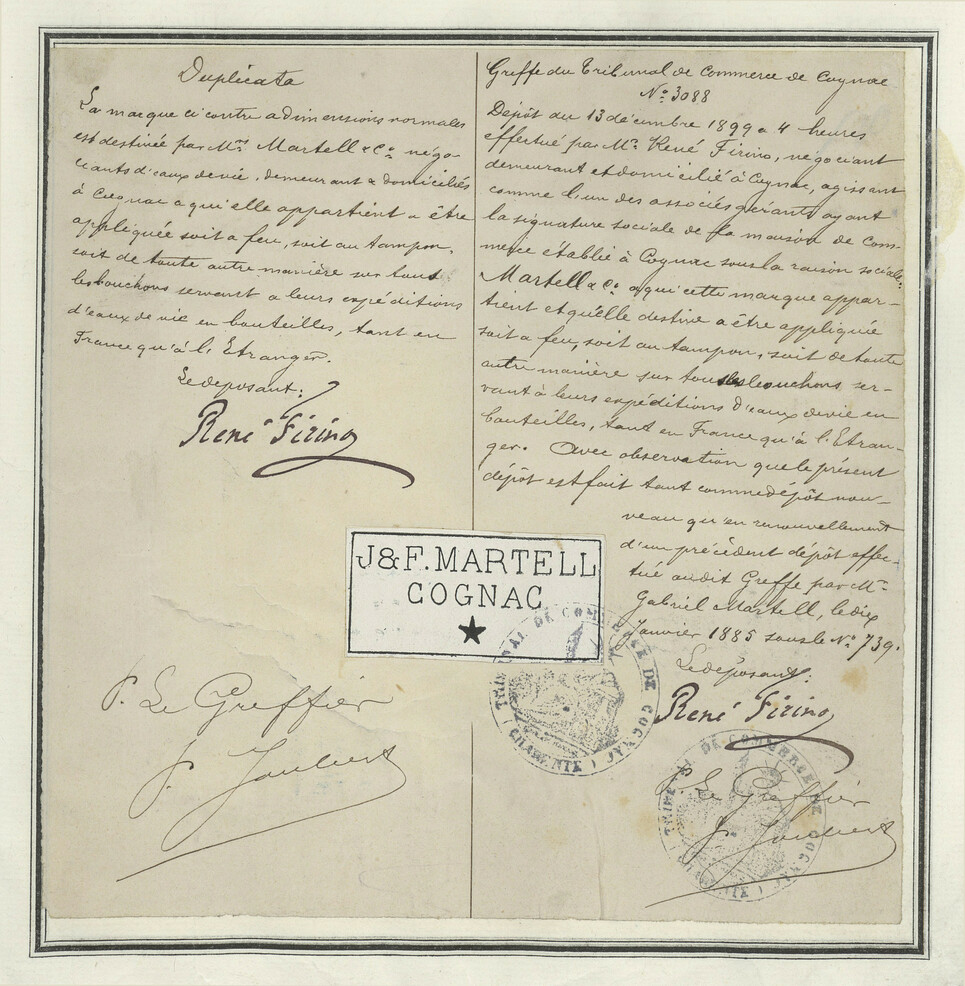 Duplicata
La marque ci contre a dimensions normales
est destinée par Mrs Martell & Co négo-
ciants d'eaux de vie, demeurant & domiciliés
à Cognac a qu'elle appartient a être
appliquée soit a feu, soit au tampon,
soit de toute autre manière sur tous
les bouchons servant a leurs expéditions
d'eaux de vie en bouteilles, tant en
France qu'à l'Etranger.
Le deposant:
René Firino
P. Le Greffier
P. Joubert
Greffe du Tribunal de Commerce de Cognac
No 3088
Dépôt du 13 décembre 1899 a 4 heures
effectué par Mr René Firino, négociant
demeurant et domicilié à Cognac, agissant
comme l'un des associés gérants ayant
la signature sociale de la maison de Com-
merce établie à Cognac sous la raison sociale:
Martell & Co a qui cette marque appar-
tient et qu'elle destine a être appliquée
soit a feu, soit au tampon, soit de toute
autre manière sur tous les bouchons ser-
vant à leurs expéditions d'eaux de vie en
bouteilles, tant en France qu'à l'Etran-
ger. Avec observation que le présent
dépôt est fait tant comme dépôt nou-
veau qu'en renouvellement
d'un précédent dépôt effec-
tué audit Greffe par Mr
Gabriel Martell, le dix
Janvier 1885 sous le No 739.
Le déposant:
René Firino
P. Le Greffier
P. Joubert
J&F. MARTELL
COGNAC
TRIBUNAL DE COMMERCE DE COGNAC
(CHARENTE)
TRIBUNAL DE COMMERCE DE COGNAC
(CHARENTE)